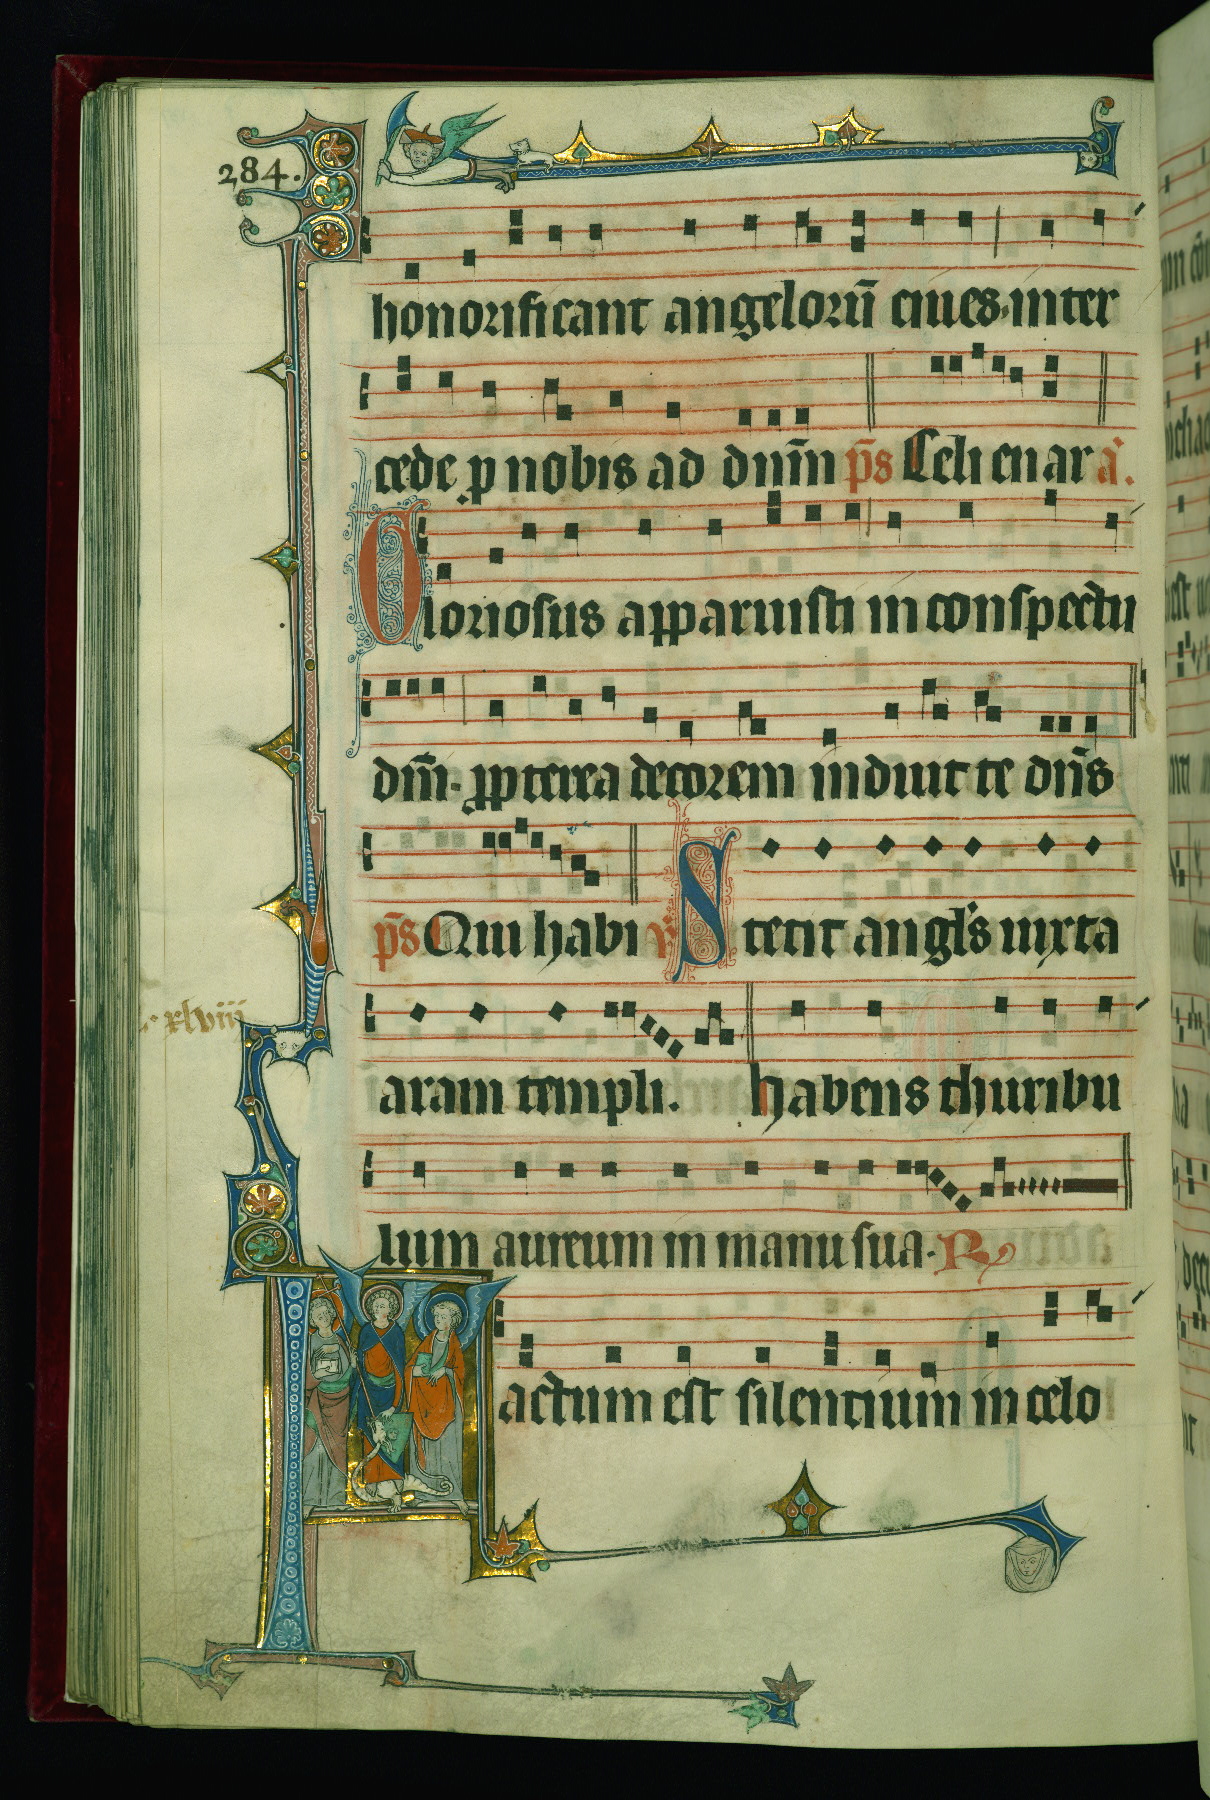 284.
honorificant angelorū ciues·inter
cede ꝑ nobis ad dnm̄ p̄s Celi enar a̾.
Gloriosus apparuisti in conspectu
dn̄i· ꝓpterea decorem induit te dn̄s
p̄s Qui habi ꝟ Stetit angl's iuxta
xlviij
aram templi. habens thuribu
lum aureum in manu sua· ℞
Factum est silentium in celo